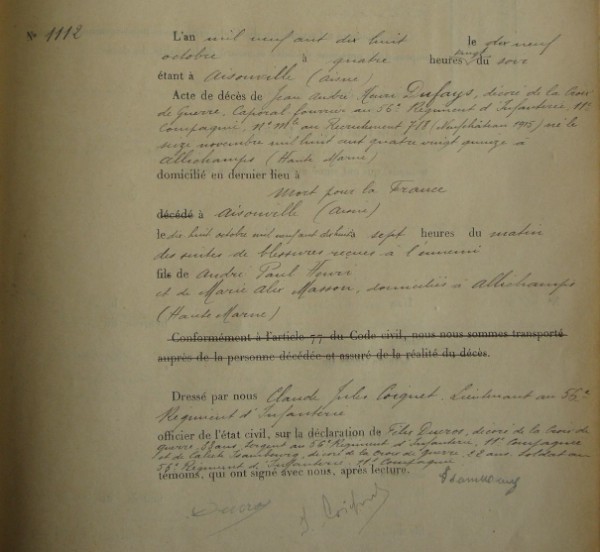 N° 1112
L'an mil neuf cent dix huit le dix neuf
octobre à quatre heures du soir
étant à Aisonville (Aisne)
Acte de décès de Jean André Henri Dufays, décoré de la Croix
de Guerre, Caporal fourrier au 56e Régiment d'Infanterie, 11e
Compagnie, N° Mle au Recrutement 788 (Neufchâteau 1915) né le
seize novembre mil huit cent quatre vingt quinze à
Allichamps (Haute Marne)
domicilié en dernier lieu à
Mort pour la France
décédé à Aisonville (Aisne)
le dix huit octobre mil neuf cent dix huit à sept heures du matin
des suites de blessures reçues à l'ennemi
fils de André Paul Henri
et de Marie Alix Masson, domiciliés à Allichamps
(Haute Marne)
Conformément à l'article 77 du Code civil, nous nous sommes transporté
auprès de la personne décédée et assuré de la réalité du décès.
Dressé par nous Claude Jules Coignet, Lieutenant au 56e
Régiment d'Infanterie
officier de l'état civil, sur la déclaration de Ducros, décoré de la Croix de
guerre, ans, Sergent au 56e Régiment d'Infanterie, 11e Compagnie
et de décoré de la Croix de Guerre, 22 ans, soldat au
56e Régiment d'Infanterie, 11e Compagnie
témoins, qui ont signé avec nous, après lecture.
Ducros